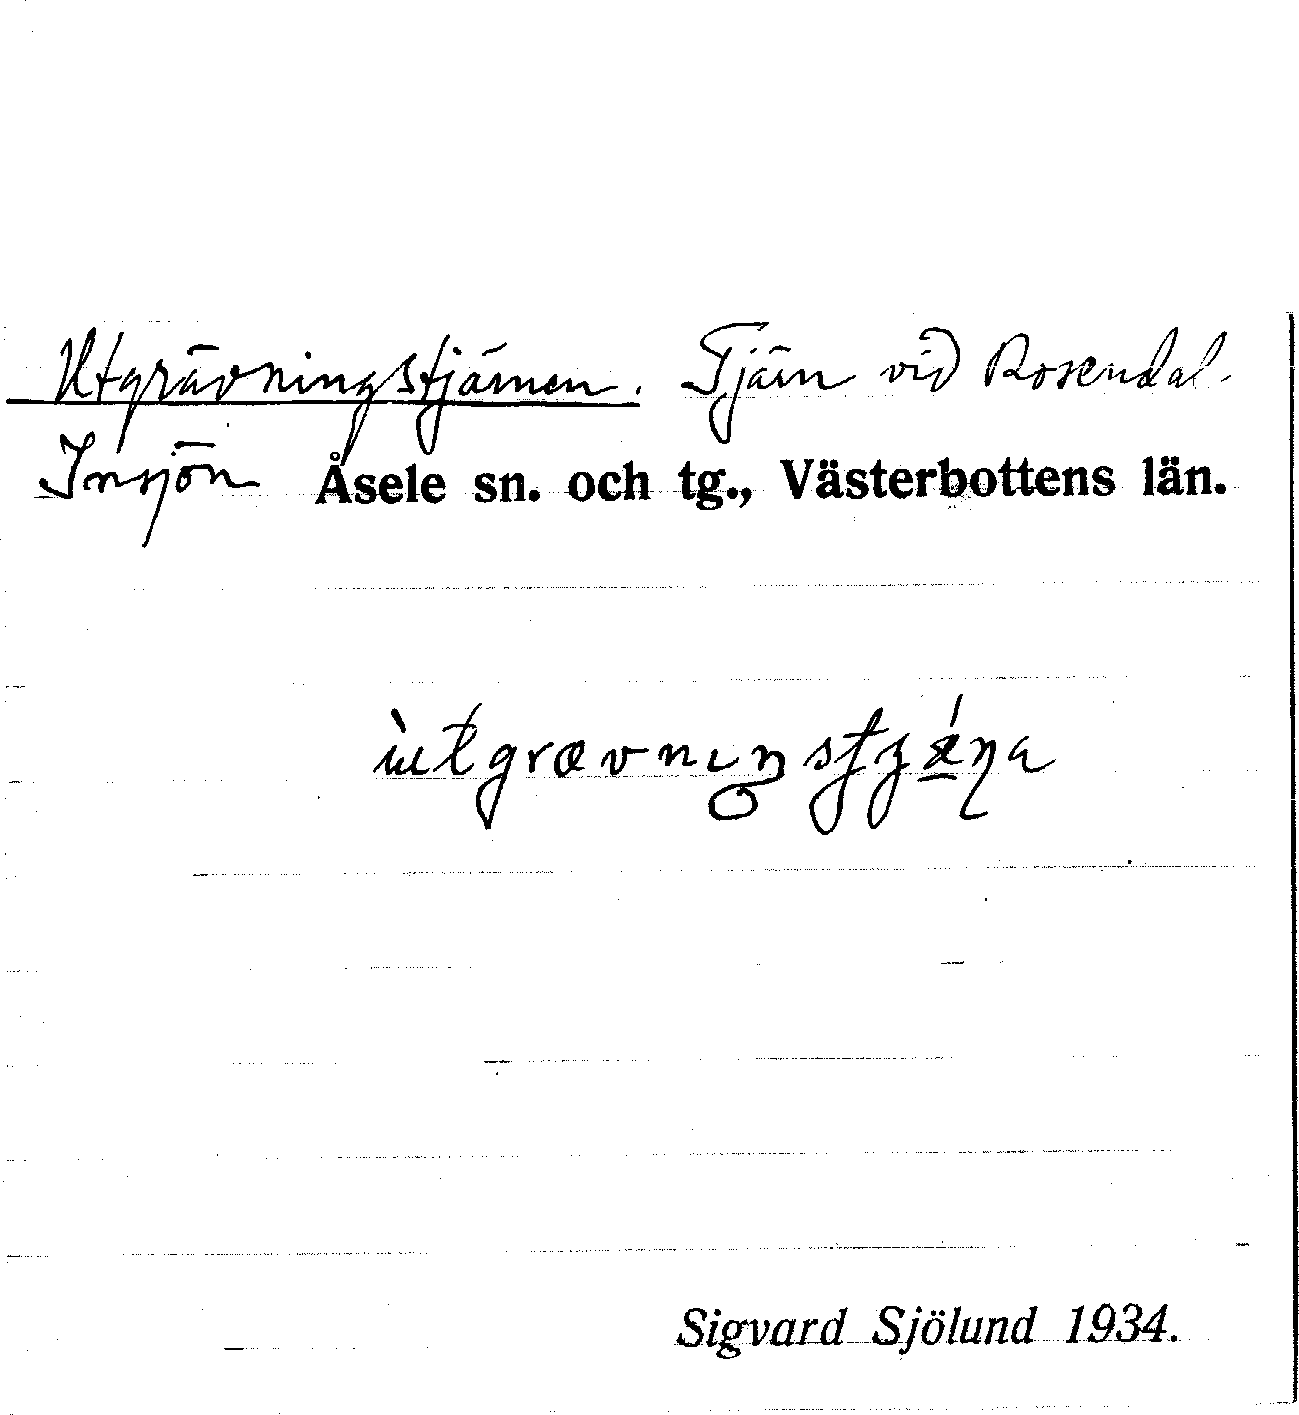 Utgrävningstjärnen. Tjärn vid Rosendal.
Insjön Åsele sn. och tg., Västerbottens län.
Sigvard Sjölund 1934.